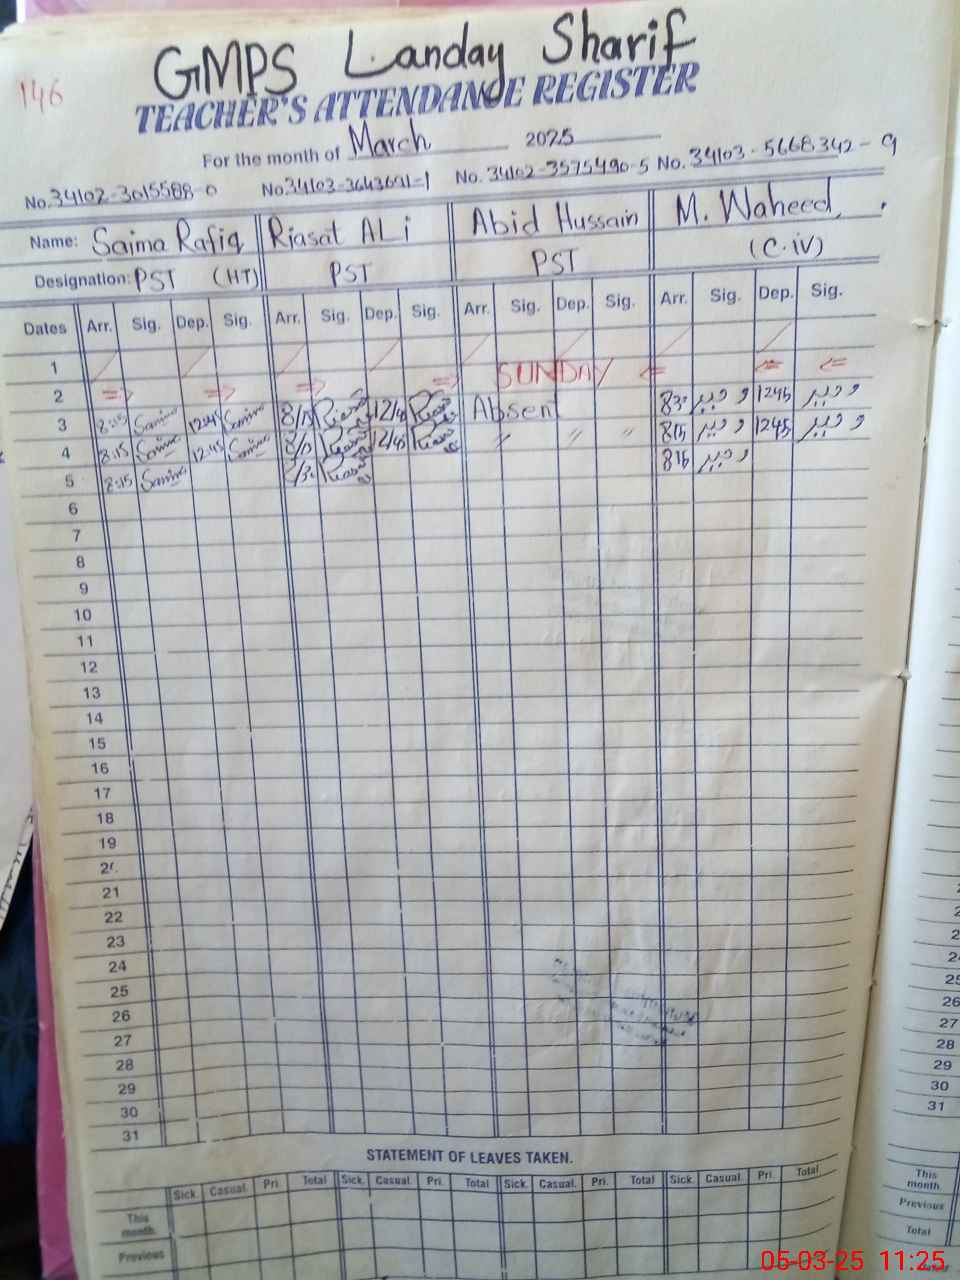 GMPS Landay Sharif
146
TEACHER'S ATTENDANCE REGISTER
For the month of March 2025
No. 34102-3015588-0 No. 34103-3643691-1 No. 34102-3575490-5 No. 34103-5668342-9
Name: Saima Rafiq Riasat ALi Abid Hussain M. Waheed
Designation: PST (HT) PST PST (C.iv)
Dates Arr. Sig. Dep. Sig. Arr. Sig. Dep. Sig. Arr. Sig. Dep. Sig. Arr. Sig. Dep. Sig.
1
2 SUNDAY
3 8:15 Saima 12:45 Saima 8/15 Riasat 12/45 Riasat Absent 830 وحید 1245 وحید
4 8:15 Saima 12:45 Saima 8/15 Riasat 12/45 Riasat 〃 〃 〃 815 وحید 1245 وحید
5 8:15 Saima Riasat 815 وحید
6
7
8
9
10
11
12
13
14
15
16
17
18
19
21
22
23
24
25
26
27
28
29
30
31
STATEMENT OF LEAVES TAKEN.
Sick. Casual. Pri. Total Sick. Casual. Pri. Total Sick. Casual. Pri. Total Sick. Casual. Pri. Total
This month
Previous
24
25
26
27
28
29
30
31
This month
Previous
Total
05-03-25 11:25